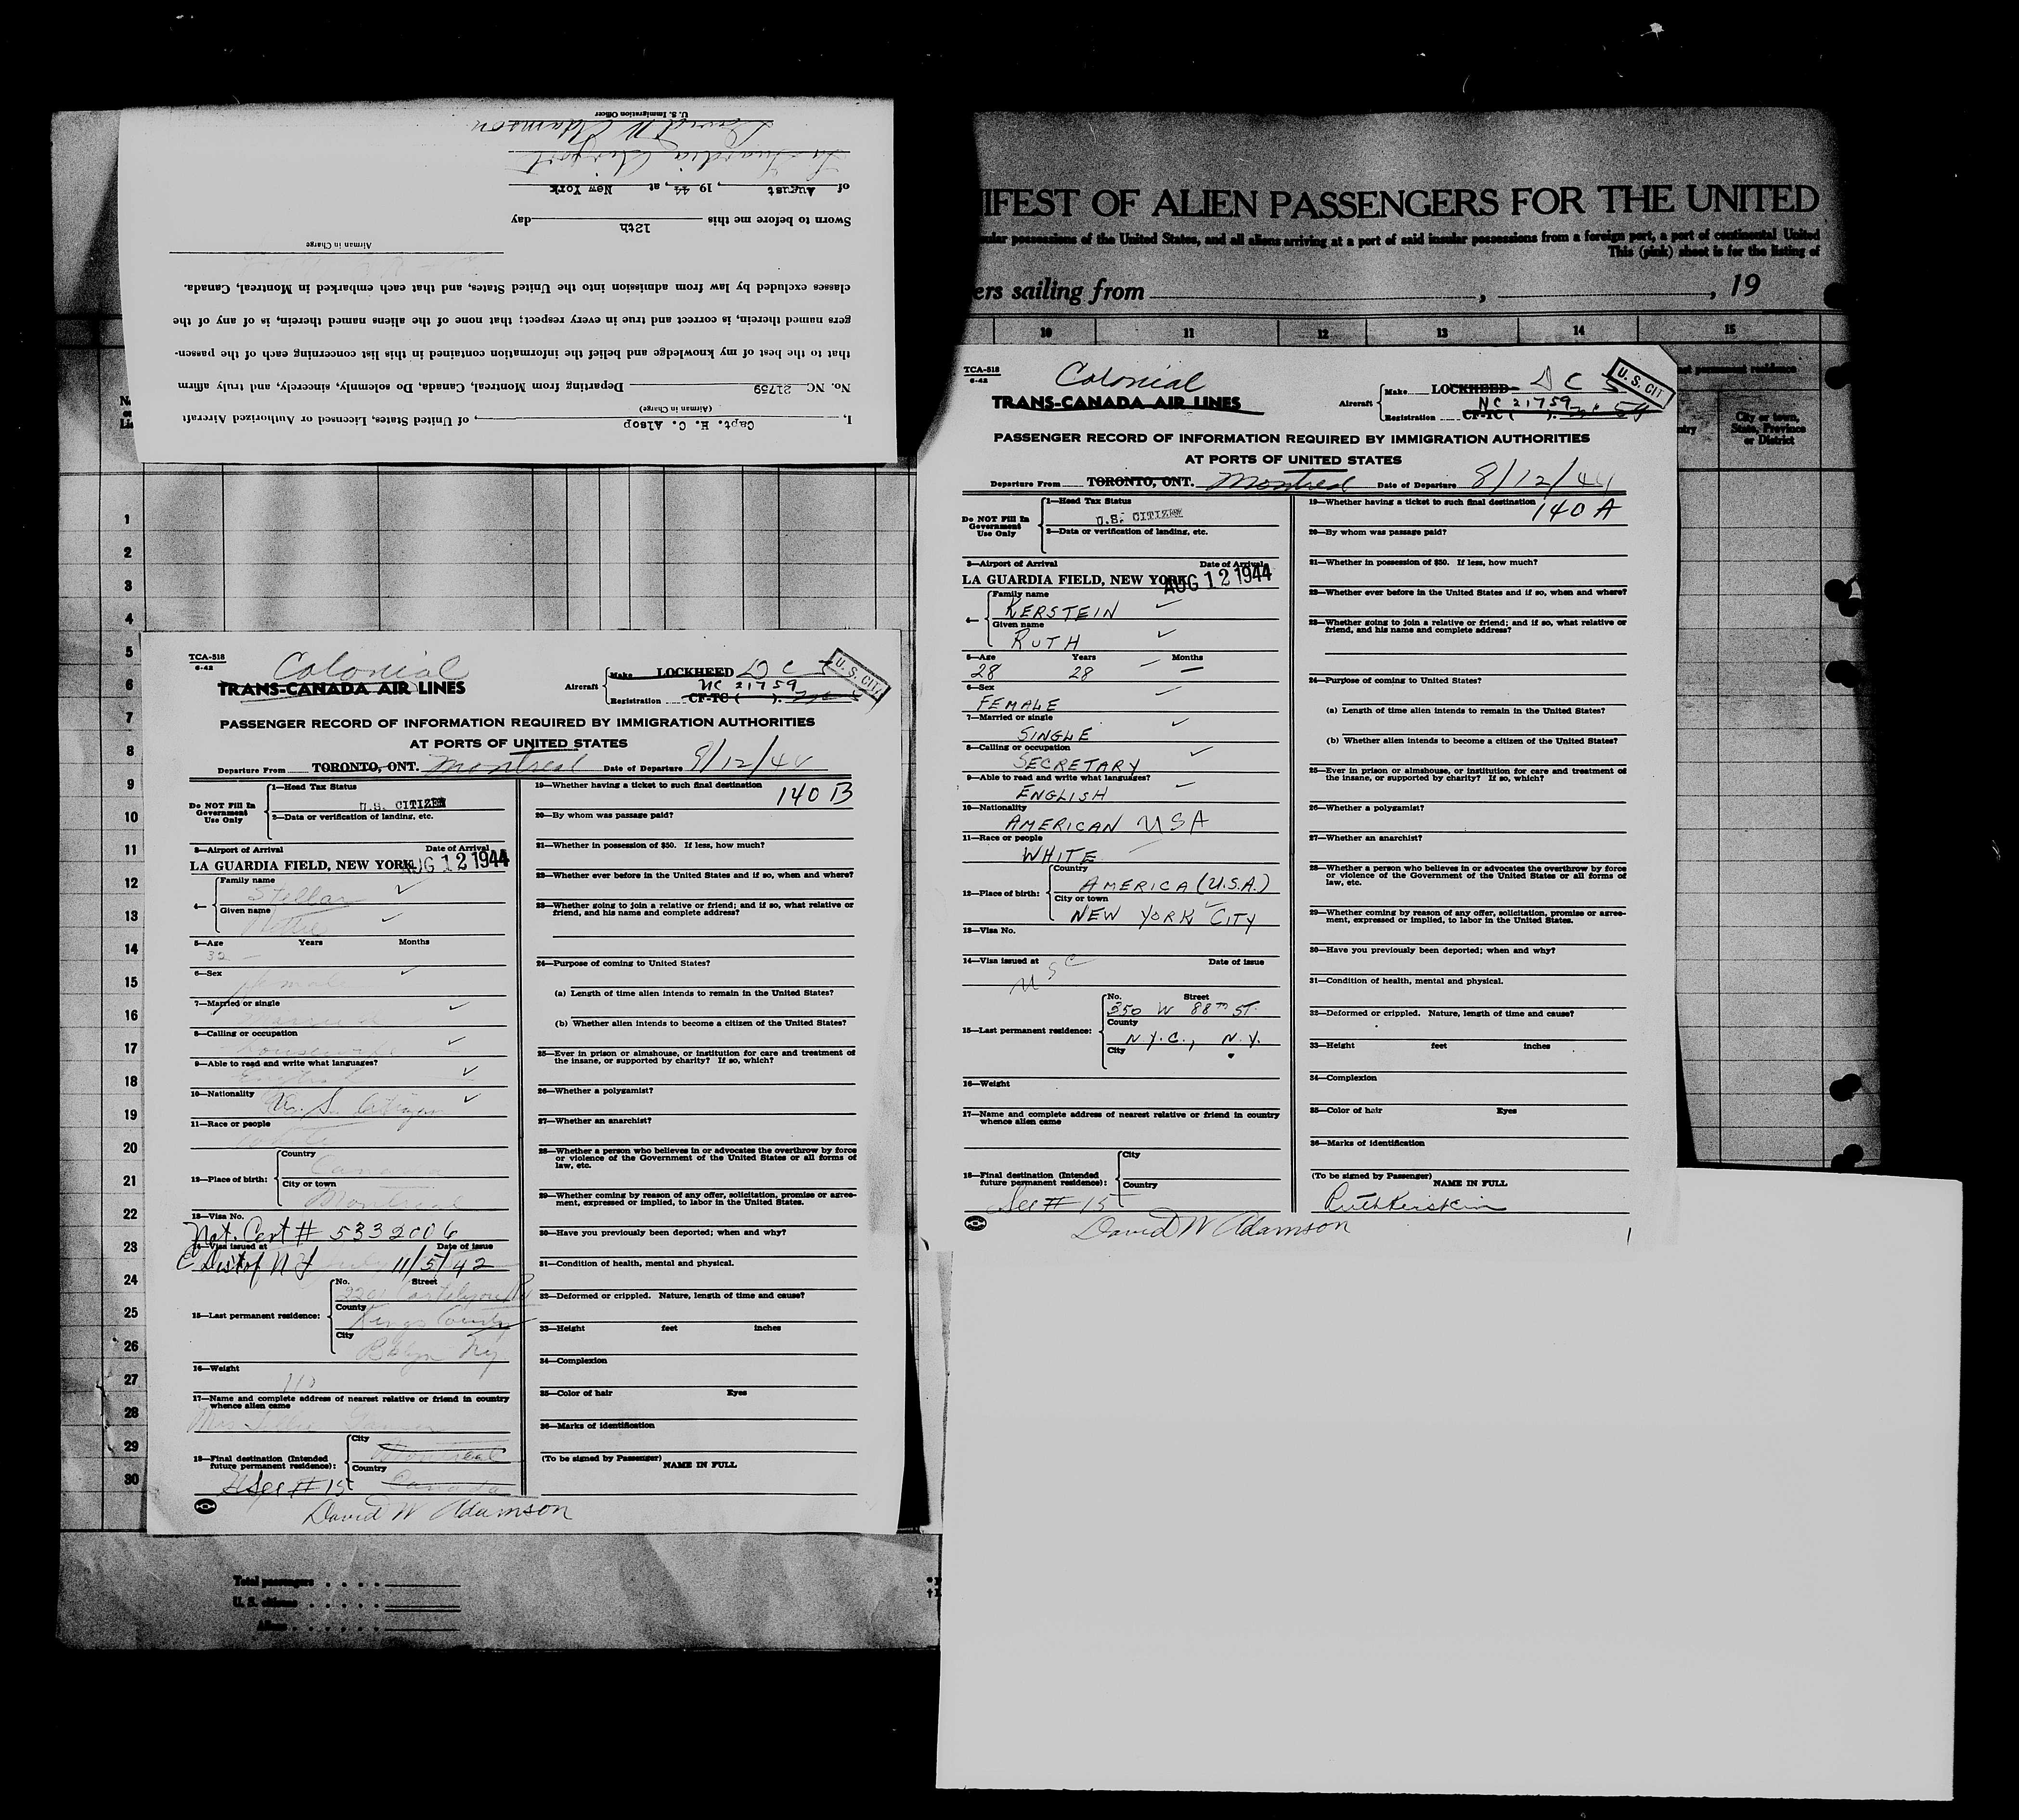 I, Capt. H. C. Alsop, of United States, Licensed or Authorized Aircraft
(Airman in Charge)
No. NC 21759 Departing from Montreal, Canada, Do solemnly, sincerely, and truly affirm
that to the best of my knowledge and belief the information contained in this list concerning each of the passen-
gers named therein, is correct and true in every respect; that none of the aliens named therein, is of any of the
classes excluded by law from admission into the United States, and that each embarked in Montreal, Canada.
Airman in Charge
Sworn to before me this 12th day
of August, 19 44, at New York
La Guardia Airport
David W Adamson
U. S. Immigration Officer
IFEST OF ALIEN PASSENGERS FOR THE UNITED
ular possessions of the United States, and all aliens arriving at a port of said insular possessions from a foreign port, a port of continental United
This (pink) sheet is for the listing of
ers sailing from , , 19
10 11 12 13 14 15
permanent residence
City or town,
State, Province
or District
1
2
3
4
5
6
7
8
9
10
11
12
13
14
15
16
17
18
19
20
21
22
23
24
25
26
27
28
29
30
Total passengers
U. S. citizens
Aliens
TCA-518
6-42
Colonial
TRANS-CANADA AIR LINES
Aircraft
Make LOCKHEED D C
NC 21759
Registration CF-TC ( ).
U. S. CIT.
PASSENGER RECORD OF INFORMATION REQUIRED BY IMMIGRATION AUTHORITIES
AT PORTS OF UNITED STATES
Departure From TORONTO, ONT. Montreal Date of Departure 8/12/44
Do NOT Fill In
Government
Use Only
1—Head Tax Status
U.S. CITIZEN
2—Data or verification of landing, etc.
3—Airport of Arrival Date of Arrival
LA GUARDIA FIELD, NEW YORK AUG 12 1944
4— Family name
Stellar
Given name
Nettie
5—Age Years Months
32 —
6—Sex
female
7—Married or single
Married
8—Calling or occupation
housewife
9—Able to read and write what languages?
English
10—Nationality U. S. Citizen
11—Race or people
White
12—Place of birth: Country
Canada
City or town
Montreal
13—Visa No.
Nat. Cert # 5332006
14—Visa issued at Date of issue
E Dist of NY 11/5/42
15—Last permanent residence: No. Street
County
Kings County
City
Bklyn Ny
16—Weight
17—Name and complete address of nearest relative or friend in country
whence alien came
Mrs
18—Final destination (Intended
future permanent residence): City
Montreal
Country
Canada
See # 15
David W Adamson
19—Whether having a ticket to such final destination
140 B
20—By whom was passage paid?
21—Whether in possession of $50. If less, how much?
22—Whether ever before in the United States and if so, when and where?
23—Whether going to join a relative or friend; and if so, what relative or
friend, and his name and complete address?
24—Purpose of coming to United States?
(a) Length of time alien intends to remain in the United States?
(b) Whether alien intends to become a citizen of the United States?
25—Ever in prison or almshouse, or institution for care and treatment of
the insane, or supported by charity? If so, which?
26—Whether a polygamist?
27—Whether an anarchist?
28—Whether a person who believes in or advocates the overthrow by force
or violence of the Government of the United States or all forms of
law, etc.
29—Whether coming by reason of any offer, solicitation, promise or agree-
ment, expressed or implied, to labor in the United States.
30—Have you previously been deported; when and why?
31—Condition of health, mental and physical.
32—Deformed or crippled. Nature, length of time and cause?
33—Height feet inches
34—Complexion
35—Color of hair Eyes
36—Marks of identification
(To be signed by Passenger)
NAME IN FULL
TCA-518
6-42
Colonial
TRANS-CANADA AIR LINES
Aircraft
Make LOCKHEED D C
NC 21759
Registration CF-TC ( ).
U. S. CIT
PASSENGER RECORD OF INFORMATION REQUIRED BY IMMIGRATION AUTHORITIES
AT PORTS OF UNITED STATES
Departure From TORONTO, ONT. Montreal Date of Departure 8/12/44
Do NOT Fill In
Government
Use Only
1—Head Tax Status
U.S. CITIZEN
2—Data or verification of landing, etc.
3—Airport of Arrival Date of Arrival
LA GUARDIA FIELD, NEW YORK AUG 12 1944
4— Family name
KERSTEIN
Given name
RUTH
5—Age Years Months
28 28 —
6—Sex
FEMALE
7—Married or single
SINGLE
8—Calling or occupation
SECRETARY
9—Able to read and write what languages?
ENGLISH
10—Nationality
AMERICAN USA
11—Race or people
WHITE
12—Place of birth: Country
AMERICA (U.S.A.)
City or town
NEW YORK CITY
13—Visa No.
14—Visa issued at Date of issue
USC
15—Last permanent residence: No. Street
350 W 88TH ST.
County
N.Y.C., N.Y.
City
16—Weight
17—Name and complete address of nearest relative or friend in country
whence alien came
18—Final destination (Intended
future permanent residence): City
Country
See # 15
David W Adamson
19—Whether having a ticket to such final destination
140 A
20—By whom was passage paid?
21—Whether in possession of $50. If less, how much?
22—Whether ever before in the United States and if so, when and where?
23—Whether going to join a relative or friend; and if so, what relative or
friend, and his name and complete address?
24—Purpose of coming to United States?
(a) Length of time alien intends to remain in the United States?
(b) Whether alien intends to become a citizen of the United States?
25—Ever in prison or almshouse, or institution for care and treatment of
the insane, or supported by charity? If so, which?
26—Whether a polygamist?
27—Whether an anarchist?
28—Whether a person who believes in or advocates the overthrow by force
or violence of the Government of the United States or all forms of
law, etc.
29—Whether coming by reason of any offer, solicitation, promise or agree-
ment, expressed or implied, to labor in the United States.
30—Have you previously been deported; when and why?
31—Condition of health, mental and physical.
32—Deformed or crippled. Nature, length of time and cause?
33—Height feet inches
34—Complexion
35—Color of hair Eyes
36—Marks of identification
(To be signed by Passenger)
NAME IN FULL
Ruth Kerstein